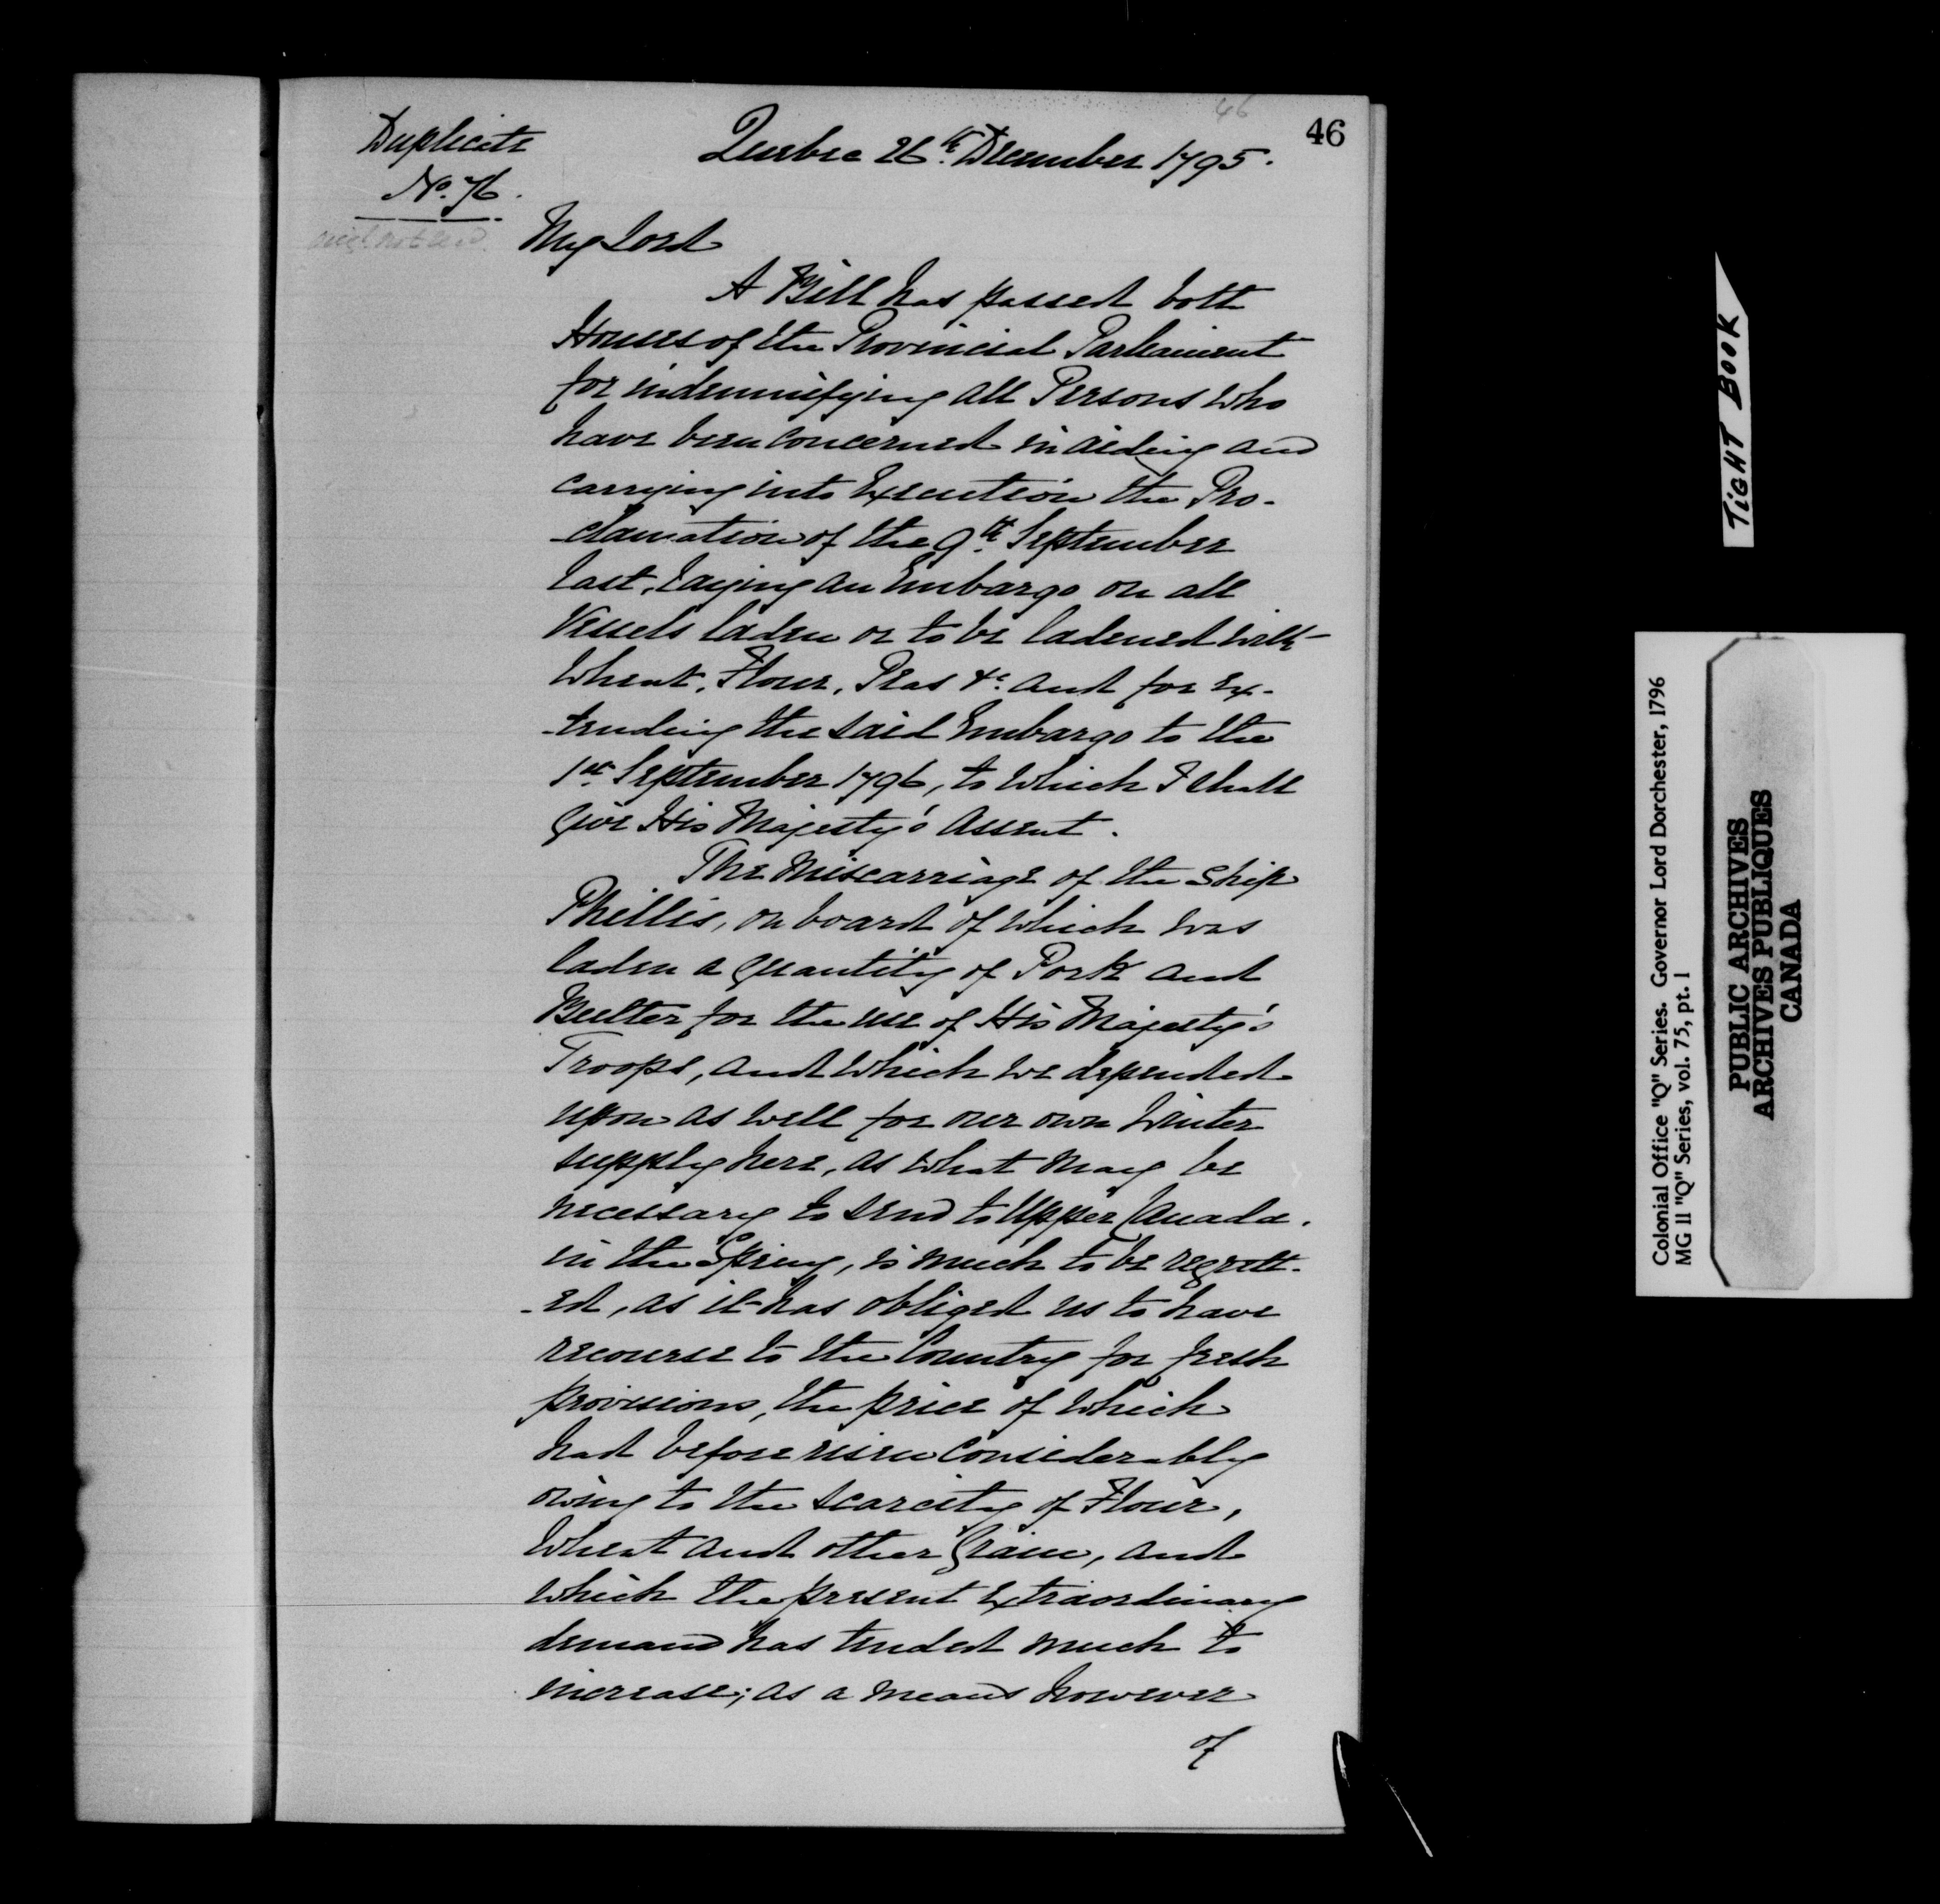 46
46
Duplicate
Nº. 76.
orig! not recd.
Quebec 26th. December 1795.
My Lord
A Bill has passed both
Houses of the Provincial Parliament
for indemnifying all Persons who
have been concerned in aiding and
carrying into Execution the Pro-
-clamation of the 9th. September
last, laying an Embargo on all
Vessels laden or to be ladened with
Wheat, Flour, Peas &c. and for Ex-
-tending the said Embargo to the
1st. September 1796, to which I shall
give His Majesty's Assent.
The Miscarriage of the Ship
Phillis, on board of which was
laden a quantity of Pork and
Butter for the use of His Majesty's
Troops, and which we depended
upon as well for our own Winter
supply here, as what may be
necessary to send to Upper Canada.
in the Spring, is much to be regrett-
-ed, as it has obliged us to have
recourse to the Country for fresh
provisions, the price of which
had before risen considerably
owing to the scarcity of Flour,
Wheat and other Grain, and
which the present extraordinary
demand has tended much to
increase; as a means however
of
TIGHT BOOK
Colonial Office "Q" Series. Governor Lord Dorchester, 1796
MG 11 "Q" Series, vol. 75, pt. 1
PUBLIC ARCHIVES
ARCHIVES PUBLIQUES
CANADA